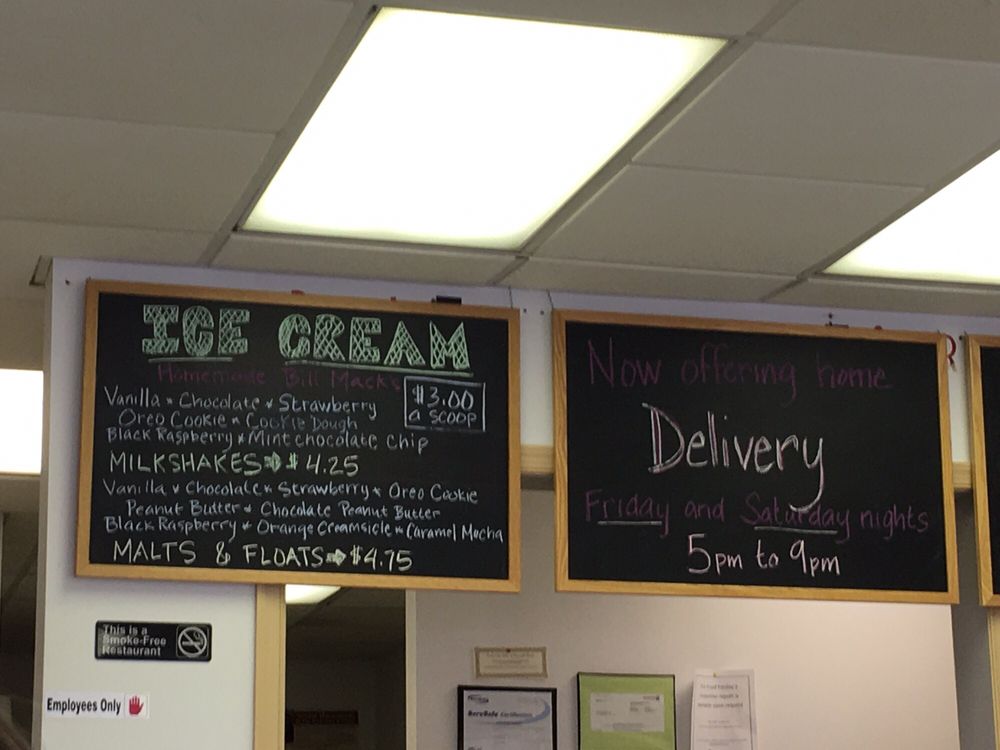 ICE CREAM
Homemade Bill Mack's
$3.00
a SCOOP
Vanilla * Chocolate * Strawberry
Oreo Cookie * Cookie Dough
Black Raspberry * Mint chocolate Chip
MILKSHAKES → $4.25
Vanilla * Chocolate * Strawberry * Oreo Cookie
Peanut Butter * Chocolate Peanut Butter
Black Raspberry * Orange Creamsicle * Caramel Mocha
MALTS & FLOATS → $4.75
Now offering home
Delivery
Friday and Saturday nights
5pm to 9pm
R
This is a
Smoke-Free
Restaurant
Employees Only
ServSafe Certification